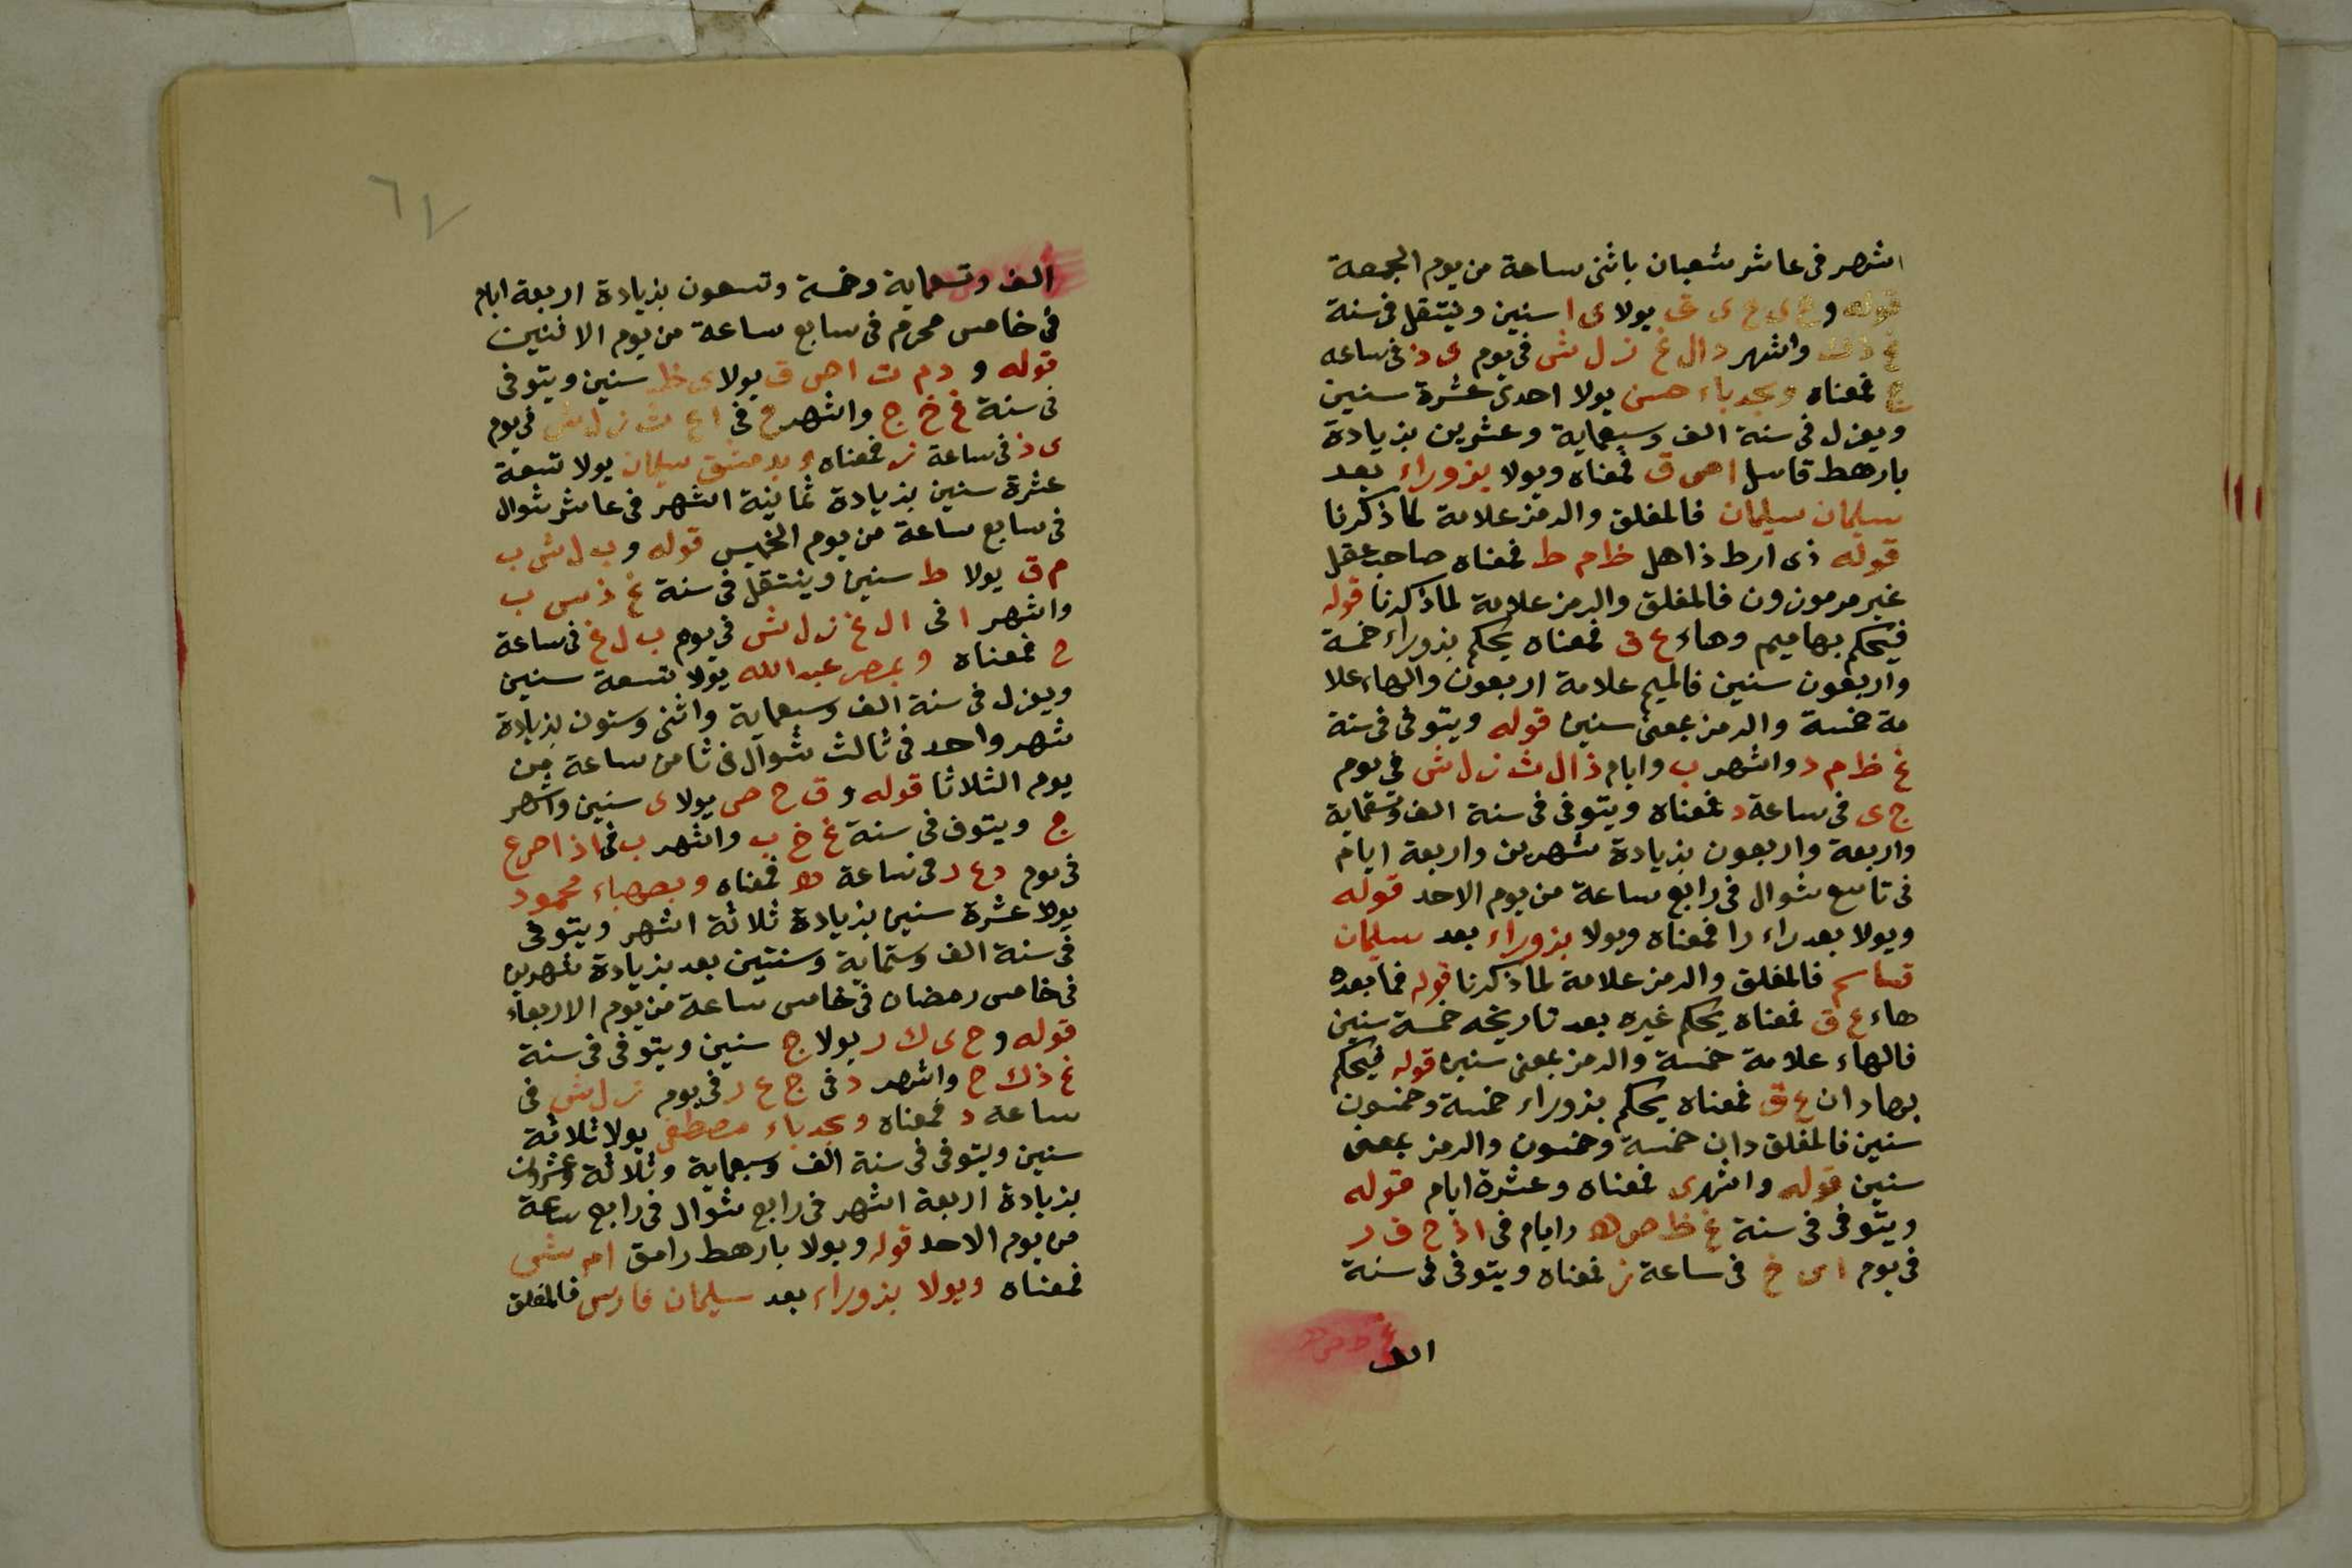 اشهر فى عاشر شعبان باثنى ساعة من يوم الجمعة
قوله و ع ى ع ى ق يولا ى ا سنين وينتقل فى سنة
غ ذ ك واشهر د ال غ ز ل ش فى يوم ى ذ فى ساعه
ع فمعناه وبجدباء حسن يولا احدى عشرة سنين
ويعزل فى سنة الف وسبعماية وعشرين بزيادة
بارهط قاسل اص ق فمعناه ويولا بزوراء بعد
سلمان سليمان فالمغلق والرمز علامة لما ذكرنا
قوله ذى ارط ذاهل ظ م ط فمعناه صاحب عقل
غير مرمون ون فالمغلق والرمز علامة لما ذكرنا قوله
فيحكم بها ميم وهاء ع ق فمعناه يحكم بزوراء خمسة
واربعون سنين فالميم علامة اربعون والهاء علا
مة خمسة والرمز بمعنى سنين قوله ويتوفى فى سنة
غ ظ م د واشهر ب وايام ذ ال ث ز ل ش فى يوم
ج ى فى ساعة د فمعناه ويتوفى فى سنة الف وتسعماية
واربعة واربعون بزيادة شهرين واربعة ايام
فى تاسع شوال فى رابع ساعة من يوم الاحد قوله
ويولا بعد راء را فمعناه ويولا بزوراء بعد سليمان
قاسم فالمغلق والرمز علامة لما ذكرنا قوله فما بعده
هاء ع ق فمعناه يحكم غيره بعد تاريخه خمسة سنين
فالهاء علامة خمسة والرمز بمعنى سنين قوله فيحكم
بها دان ع ق فمعناه يحكم بزوراء خمسة وخمسون
سنين فالمغلق دان خمسة وخمسون والرمز بمعنى
سنين قوله واشهرى فمعناه وعشرة ايام قوله
ويتوفى فى سنة غ ظ ص ه د ايام فى اذ ح ق ر
فى يوم اى خ فى ساعة ز فمعناه ويتوفى فى سنة
الف
٦٧
الف وتسعماية وخمسة وتسعون بزيادة اربعة ايام
فى خامس محرم فى سابع ساعة من يوم الاثنين
قوله و د م ت اص ق يولا ى ظ سنين ويتوفى
فى سنة غ خ ج واشهر ح فى اع ث ز ل ش فى يوم
ى ذ فى ساعة ز فمعناه وبدمشق سليمان يولا تسعة
عشرة سنين بزيادة ثمانية اشهر فى عاشر شوال
فى سابع ساعة من يوم الخميس قوله و ب ل ش ب
م ق يولا ط سنين وينتقل فى سنة غ ذ س ب
واشهر ا فى ال غ ز ل ش فى يوم ب ل غ فى ساعة
ح فمعناه وبمصر عبد الله يولا تسعة سنين
ويعزل فى سنة الف وسبعماية واثنى وستون بزيادة
شهر واحد فى ثالث شوال فى ثامن ساعة من
يوم الثلاثا قوله و ق ح ص يولا ى سنين واشهر
ج ويتوفى فى سنة غ خ ب واشهر ب فى اذ اص ع
فى يوم د ع د فى ساعة ه فمعناه وبصهباء محمود
يولا عشرة سنين بزيادة ثلاثة اشهر ويتوفى
فى سنة الف وستماية وسنتين بعد بزيادة شهرين
فى خامس رمضان فى خامس ساعة من يوم الاربعاء
قوله و ح ى ك ر يولا ج سنين ويتوفى فى سنة
غ ذ ك ح واشهر د فى ج ع ر فى يوم ز ل ش فى
ساعة د فمعناه وبجدباء مصطفى يولا ثلاثة
سنين ويتوفى فى سنة الف وسبعماية وثلاثة وعشرون
بزيادة اربعة اشهر فى رابع شوال فى رابع ساعة
من يوم الاحد قوله ويولا بارهط رامق ام ش
فمعناه ويولا بزوراء بعد سليمان فارس فالمغلق